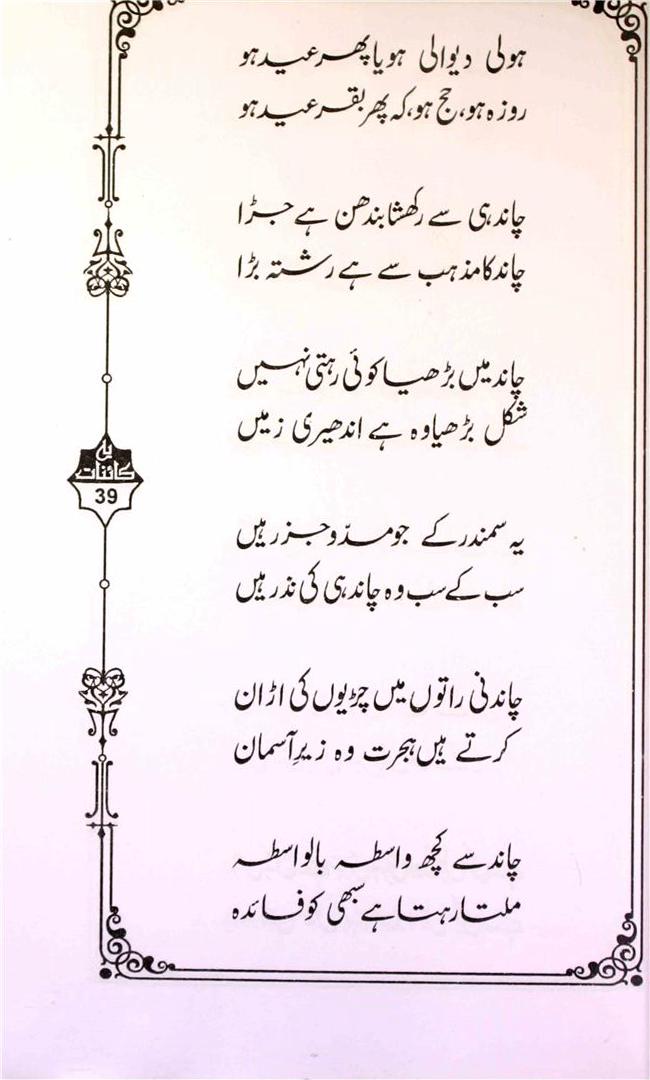 ہولی دیوالی ہو یا پھر عید ہو
روزہ ہو، حج ہو، کہ پھر بقر عید ہو
چاند ہی سے رکھشا بندھن ہے جڑا
چاند کا مذہب سے ہے رشتہ بڑا
چاند میں بڑھیا کوئی رہتی نہیں
شکل بڑھیا وہ ہے اندھیری زمیں
یہ سمندر کے جو مدّ و جزر ہیں
سب کے سب وہ چاند ہی کی نذر ہیں
چاندنی راتوں میں چڑیوں کی اڑان
کرتے ہیں ہجرت وہ زیرِ آسمان
چاند سے کچھ واسطہ بالواسطہ
ملتا رہتا ہے سبھی کو فائدہ
یہ
کائنات
39